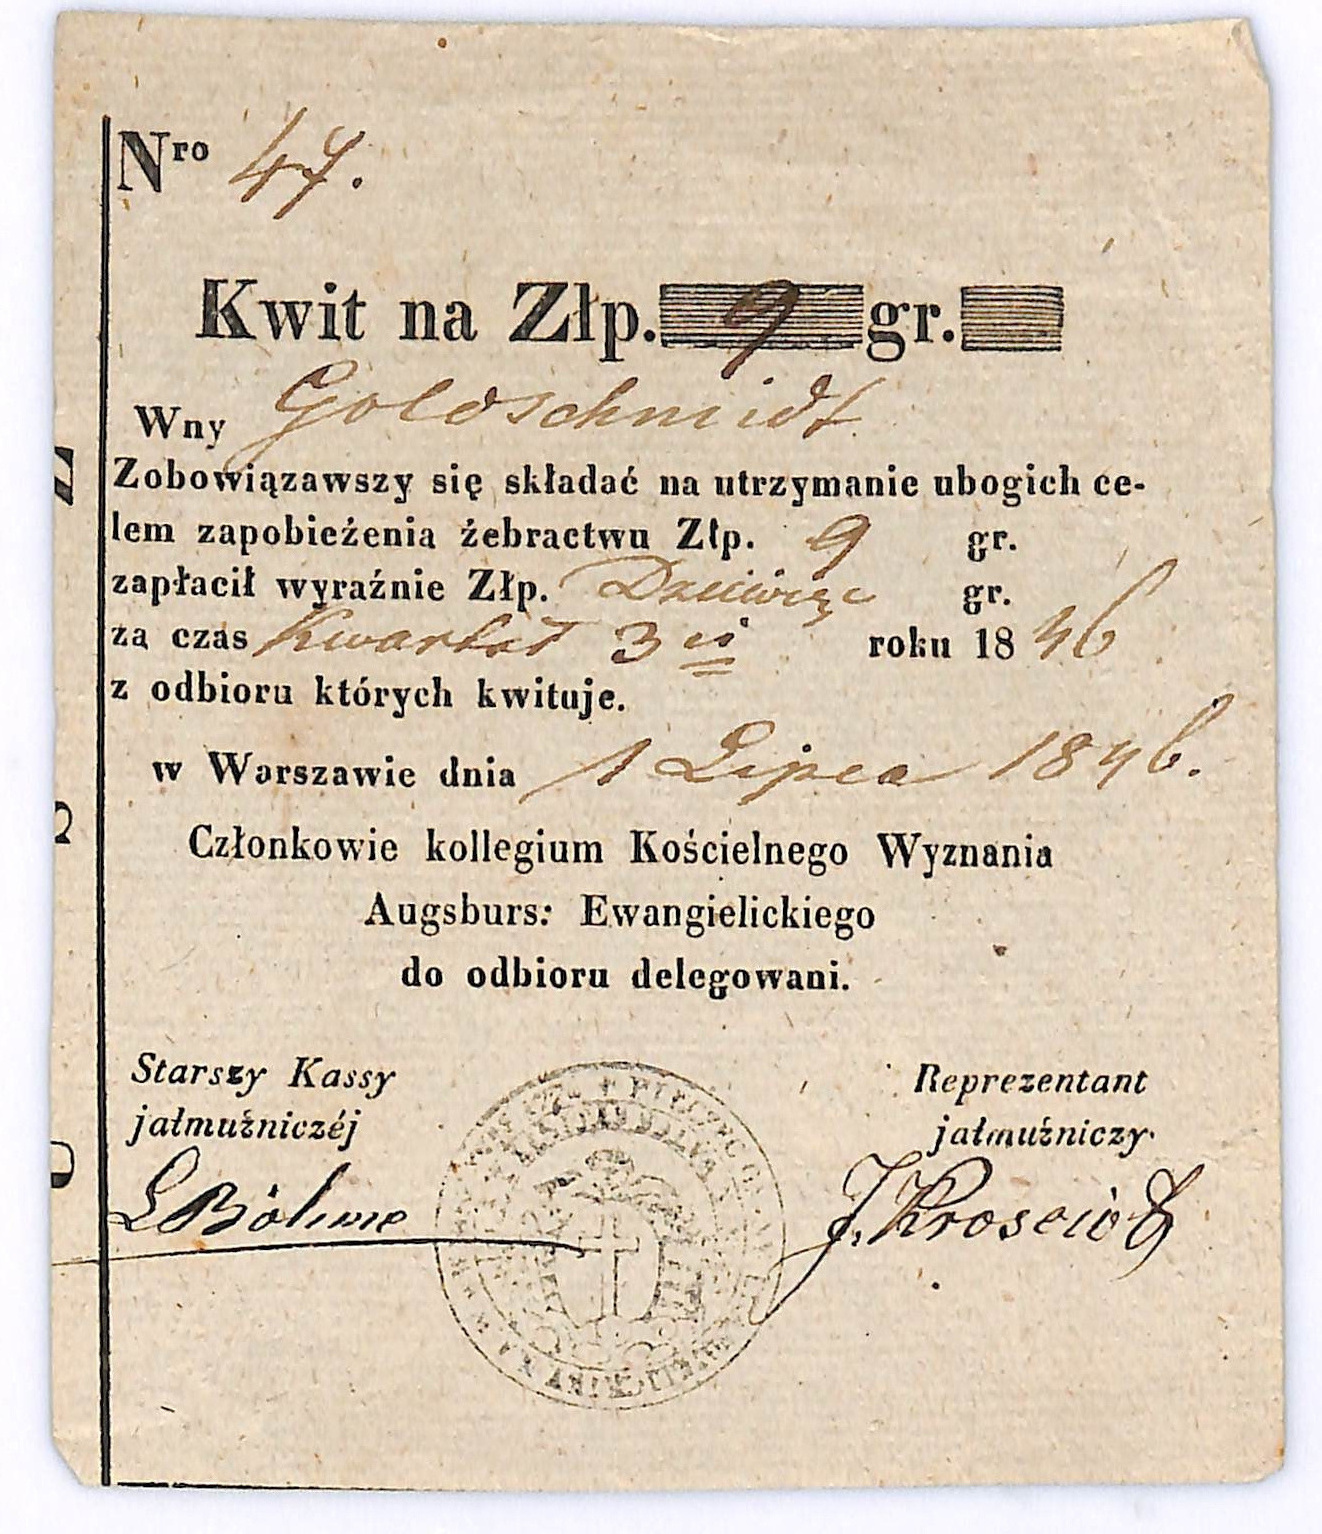 Nro 47.
Kwit na Złp. 9 gr.
Wny Goldschmidt
Zobowiązawszy się składać na utrzymanie ubogich ce-
lem zapobieżenia żebractwu Złp. 9 gr.
zapłacił wyraźnie Złp. Dziewięć gr.
za czas Kwartał 3ci roku 1846
z odbioru których kwituje.
w Warszawie dnia 1 Lipca 1846.
Członkowie kollegium Kościelnego Wyznania
Augsburs: Ewangielickiego
do odbioru delegowani.
Starszy Kassy
jałmużniczéj
Reprezentant
jałmużniczy
LBöhme